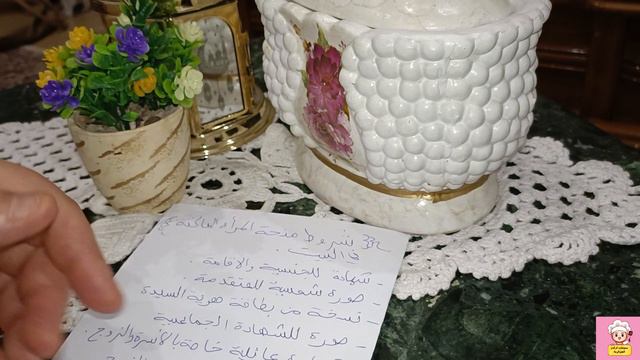 شروط منحة المرأة الماكثة في
البيت
- شهادة للجنسية والإقامة.
- صورة شمسية للمتقدمة.
- نسخة من بطاقة هوية السيدة
صورة للشهادة الجماعية
عائلية خاصة بالأسرة والزوج.